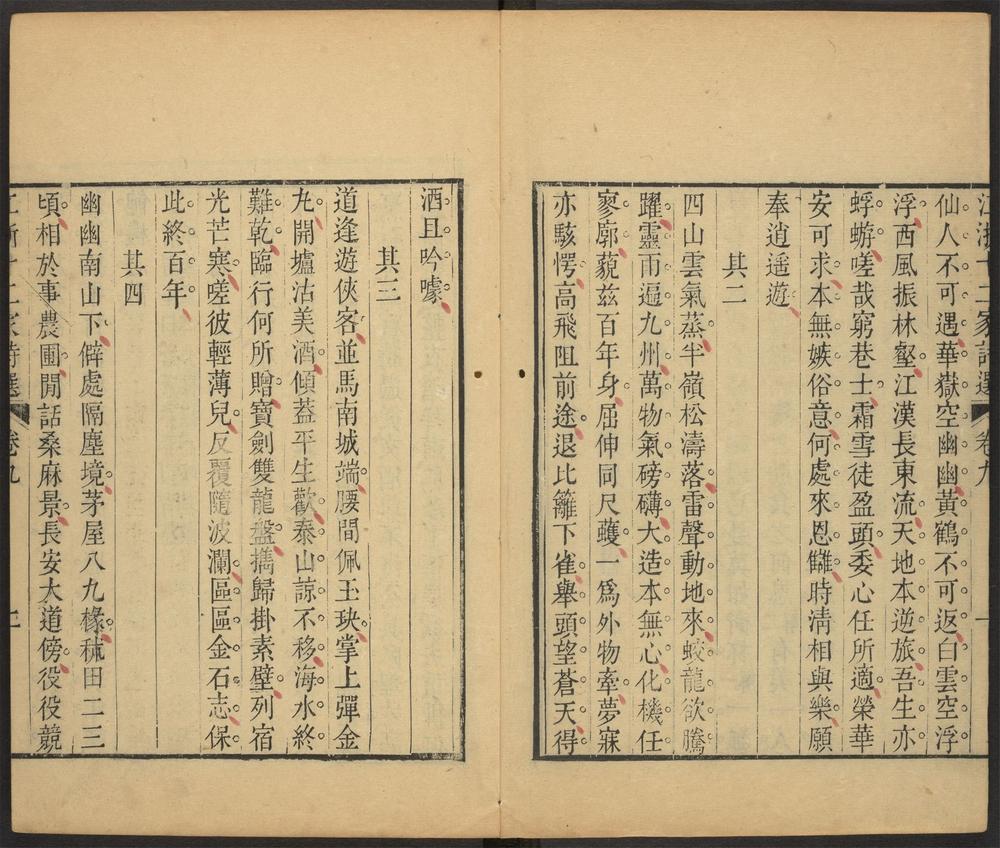 江浙十二家詩選 卷九 一
仙人不可遇華嶽空幽幽黃鶴不可返白雲空浮
浮西風振林壑江漢長東流天地本逆旅吾生亦
蜉蝣嗟哉窮巷士霜雪徒盈頭委心任所適榮華
安可求本無嫉俗意何處來恩讎時清相與樂願
奉逍遥遊
其二
四山雲氣蒸半嶺松濤落雷聲動地來蛟龍欲騰
躍靈雨遍九州萬物氣磅礴大造本無心化機任
寥廓藐茲百年身屈伸同尺蠖一爲外物牽夢寐
亦駭愕高飛阻前途退比籬下雀舉頭望蒼天得
酒且吟噱
其三
道逢遊俠客並馬南城端腰間佩玉玦掌上彈金
丸開壚沽美酒傾蓋平生歡泰山諒不移海水終
難乾臨行何所贈寶劍雙龍盤擕歸掛素壁列宿
光芒寒嗟彼輕薄兒反覆隨波瀾區區金石志保
此終百年
其四
幽幽南山下僻處隔塵境茅屋八九椽秫田二三
頃相於事農圃閒話桑麻景長安大道傍役役競
江浙十二家詩選 卷九 二